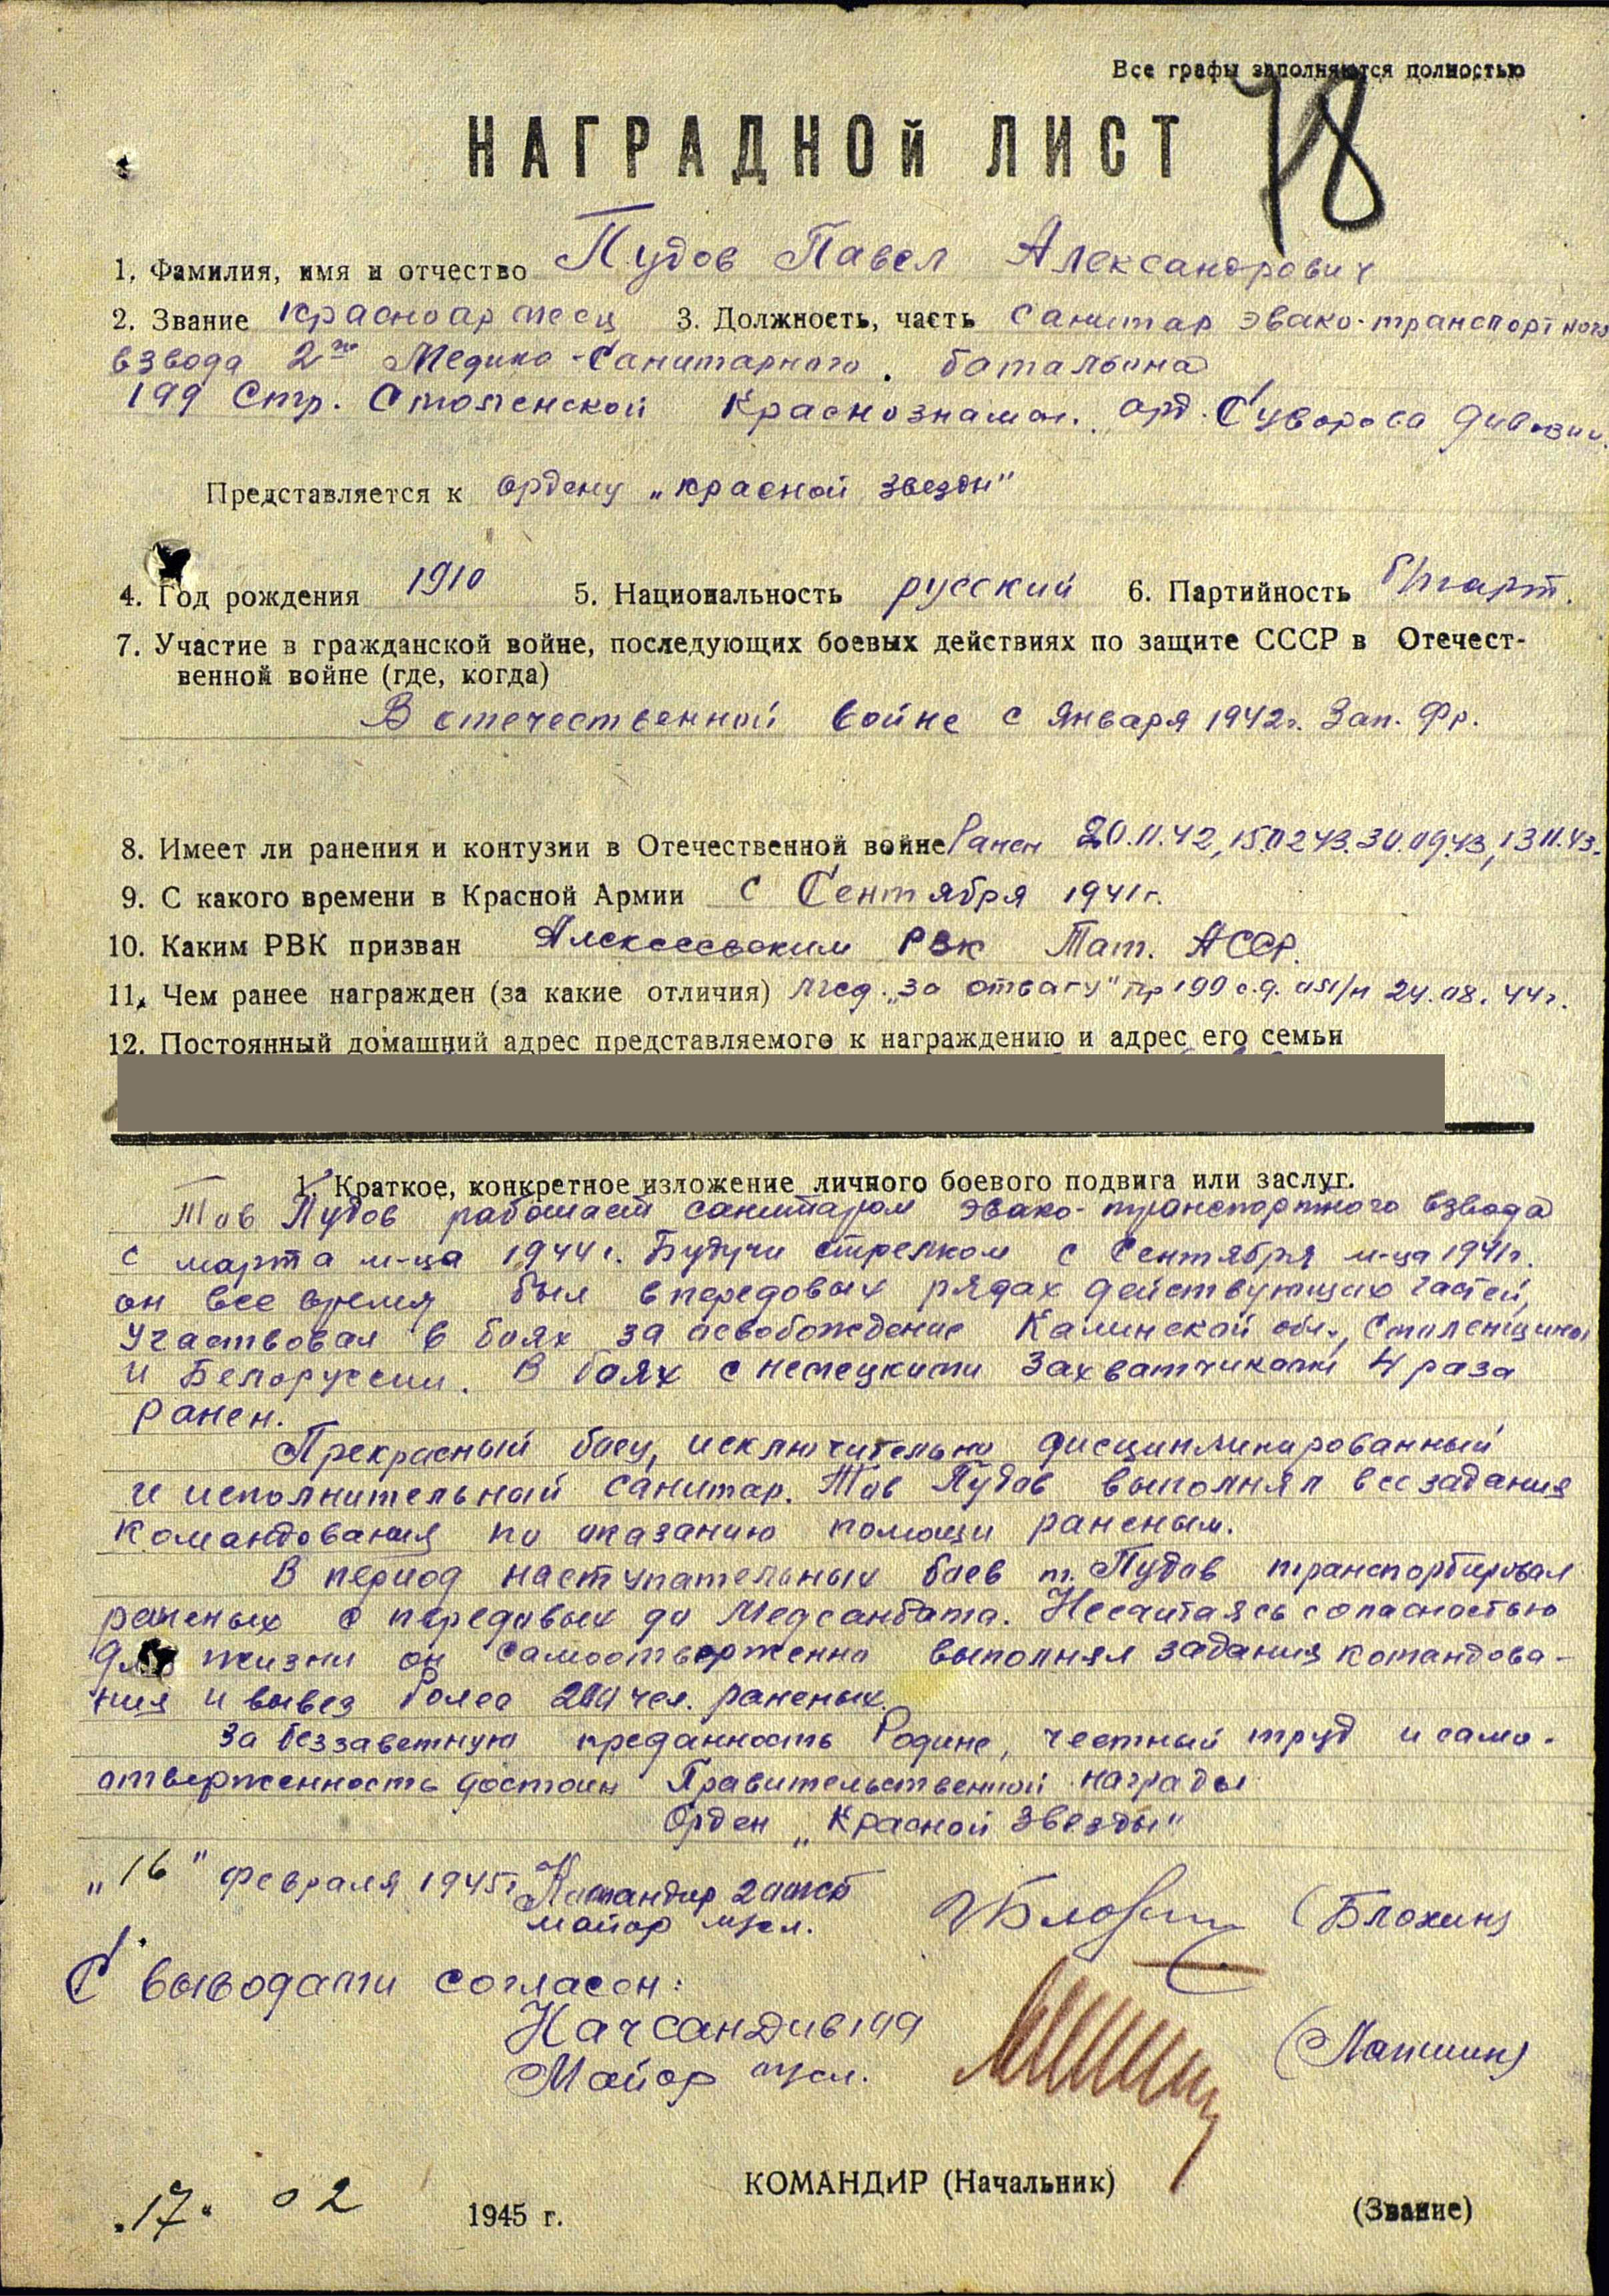 Все графы заполняются полностью
78
НАГРАДНОЙ ЛИСТ
1. Фамилия, имя и отчество Пудов Павел Александрович
2. Звание красноармеец 3. Должность, часть Санитар эвако-транспортного
взвода 2го Медико-Санитарного батальона
199 Стр. Смоленской Краснознамен. орд. Суворова дивизии.
Представляется к ордену „Красной звезды"
4. Год рождения 1910 5. Национальность русский 6. Партийность б/парт.
7. Участие в гражданской войне, последующих боевых действиях по защите СССР в Отечест-
венной войне (где, когда)
В отечественной войне с января 1942г. Зап. Фр.
8. Имеет ли ранения и контузии в Отечественной войне Ранен 20.11.42, 15.02.43. 30.09.43, 13.11.43.
9. С какого времени в Красной Армии с Сентября 1941г.
10. Каким РВК призван Алексеевским РВК Тат. АССР.
11. Чем ранее награжден (за какие отличия) мед. „За отвагу" пр 199 с.д. 24.08.44г.
12. Постоянный домашний адрес представляемого к награждению и адрес его семьи
1. Краткое, конкретное изложение личного боевого подвига или заслуг.
Тов Пудов работает санитаром эвако-транспортного взвода
с марта м-ца 1944г. Будучи стрелком с Сентября м-ца 1941г.
он все время был в передовых рядах действующих частей,
Участвовал в боях за освобождение Калинской обл., Смоленщины
и Белоруссии. В боях с немецкими захватчиками 4 раза
ранен.
Прекрасный боец, исключительно дисциплинированный
и исполнительный санитар. Тов Пудов выполнял все задания
командования по оказанию помощи раненым.
В период наступательных боев т. Пудов транспортировал
раненых с передовых до Медсанбата. Несчитаясь с опасностью
для жизни он самоотверженно выполнял задания командова-
ния и вывез более 200 чел. раненых.
За беззаветную преданность Родине, честный труд и само-
отверженность достоин Правительственной награды
Орден „Красной Звезды"
„16" февраля 1945г Командир 2 омсб
майор м/сл. (Блохин)
С выводами согласен:
Начсандив 199
Майор м/сл. (Лапшин)
КОМАНДИР (Начальник)
17. 02 1945 г. (Звание)